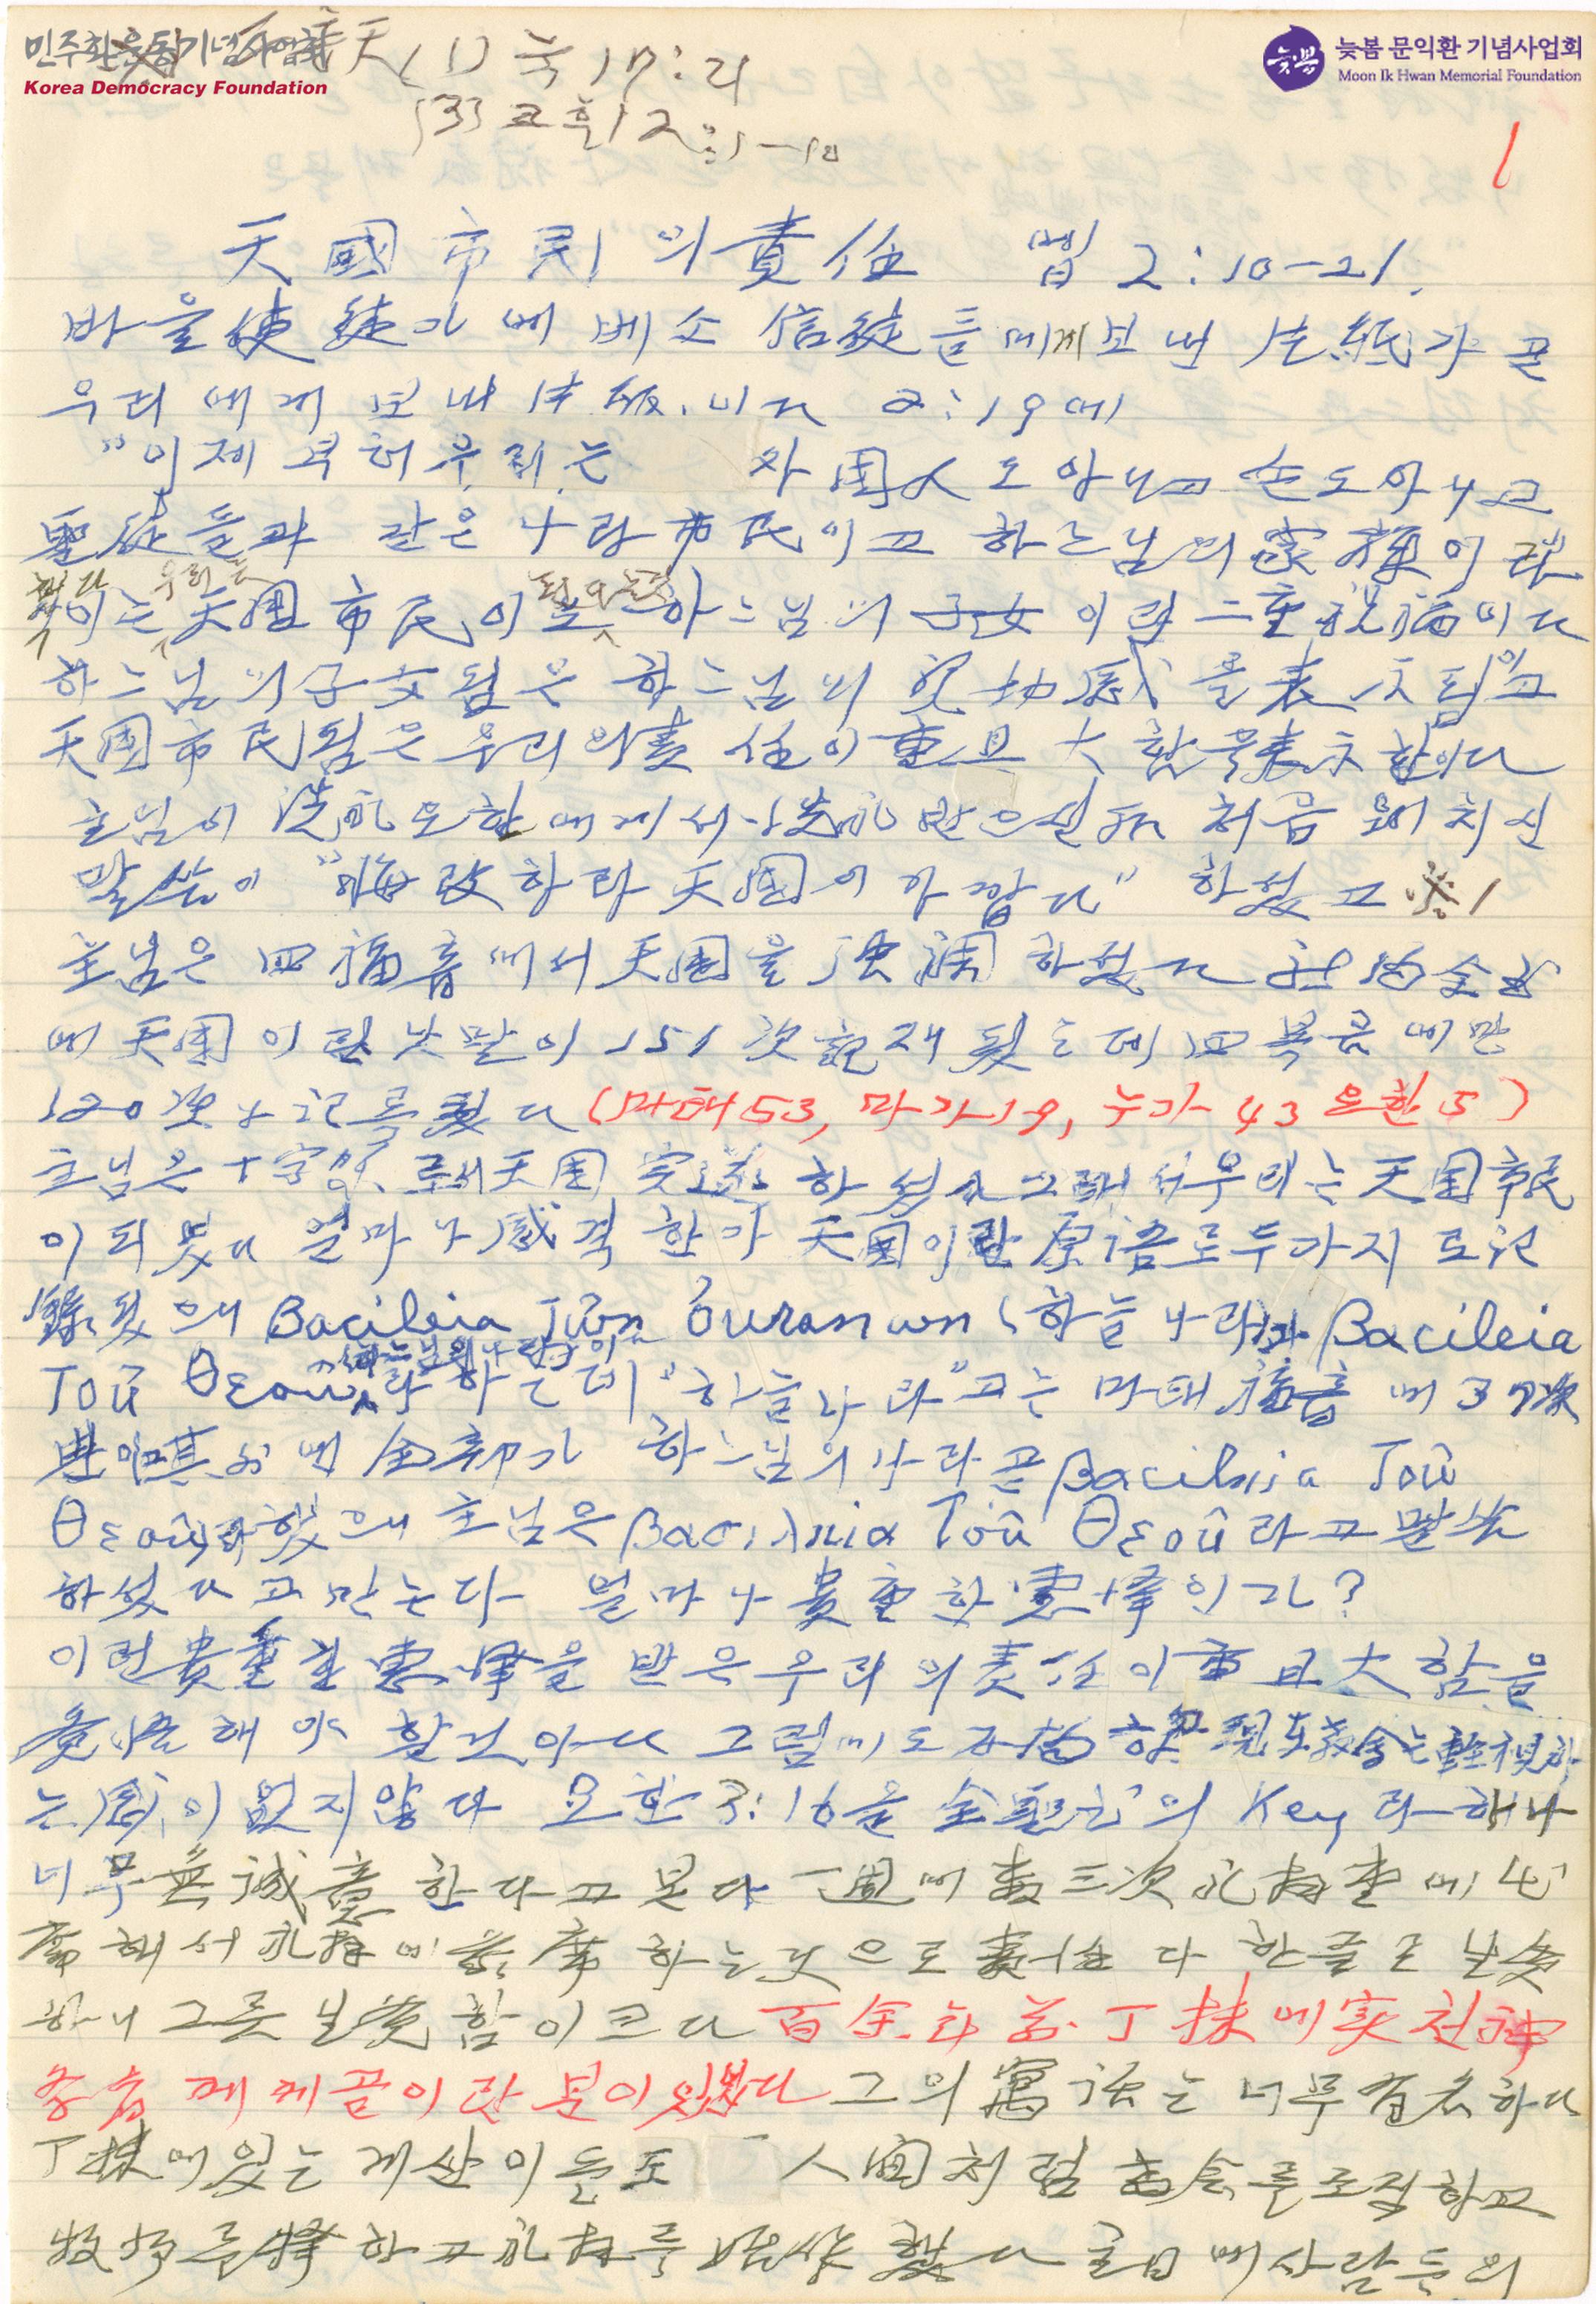 민주화운동기념사업회 天 (1) 눅 17:21
Korea Democracy Foundation
늦봄 문익환 기념사업회
Moon Ik Hwan Memorial Foundation
(3) 고후 12:1-10
1
天國市民의責任 엡 2:10-21.
바울使徒가 에베소 信徒들에게보낸 片紙가 곧
우리에게 보낸 片紙이다 2:19에
"이제부터우리는 外国人도아니고 손도아니고
聖徒들과 같은 나라市民이고 하느님의家族이라
이는 우리는 天国市民이고 하느님의子女이란 二重祝福이다
하느님의子女됨은 하느님의 表示됨이고
天国市民됨은우리의責任이重且大함을表示함이다
主님이 洗礼요한에게서 洗礼받으신後 처음 외치신
말씀이 "悔改하라 天国이가깝다" 하셨고 ※1
主님은 四福音에서天国을强調하셨다 新約全書
에 天国이란낫말이 151次記載됬는데 四복음에만
120次나記录됬다 (마태53, 마가19, 누가43 요한5)
主님은十字架로서天国完遂하셨다그래서우리는天国市民
이되였다 얼마나感격한가 天国이란原語로두가지로记
錄됬으며 Bacileia Tŵn Ouranwn (하늘나라)와 Bacileia
Toû Θεoû (하느님의나라)라하는데 "하늘나라"고는 마태福音에 37次
其他 全部가 하느님의나라 곧 Bacileia Toû
Θεoû라했으며 主님은 Bacileia Toû Θεoû라고말씀
하셨다고믿는다 얼마나貴重한恵澤인가?
이런貴重한恵澤을 받은우리의責任이重且大함을
覚悟해야 할것이다 그럼에도不拘하고 現在教会는軽視하
는感이없지않다 요한 3:16을 全聖书의 Key라하나
너무無誠意한다고본다 一週에 三次礼拝堂에出
席해서礼拝에参席하는것으로責任다한줄로
하니 그릇 함이크다 百余年前 丁抹에実存神
学者 께께골이란분이있었다 그의寓話는너무有名하다
丁抹에있는게산이들도 人間처럼 教会를조직하고
牧师를擇하고礼拝를始作했다 主日에사람들의